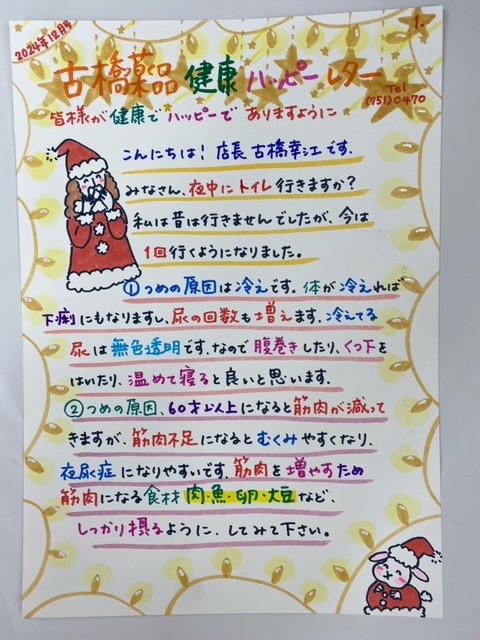 2024年12月号
1.
古橋薬品 健康 ハッピーレター
Tel
(751)0470
皆様が健康でハッピーで ありますように
こんにちは! 店長 古橋幸江です.
みなさん、夜中にトイレ行きますか?
私は昔は行きませんでしたが、今は
1回行くようになりました。
①つめの原因は冷えです。体が冷えれば
下痢にもなりますし、尿の回数も増えます。冷えてる
尿は無色透明です。なので腹巻きしたり、くつ下を
はいたり、温めて寝ると良いと思います.
②つめの原因、60才以上になると筋肉が減って
きますが、筋肉不足になるとむくみやすくなり、
夜尿症になりやすいです。筋肉を増やすため
筋肉になる食材 肉・魚・卵・大豆など、
しっかり摂るように、してみて下さい。